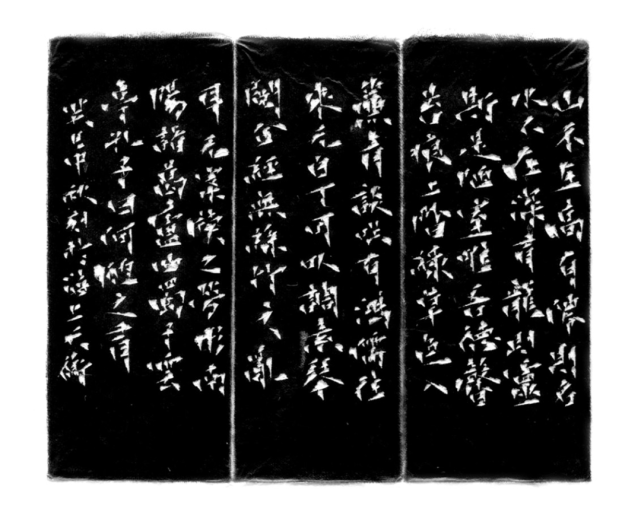 山不在高有僊則名
水不在深有龍則靈
斯是陋室惟吾德馨
苔痕上階綠草色入
簾青談笑有鴻儒往
來无白丁可以調素琴
閱金經無絲竹之亂
耳无案牘之勞形南
陽諸葛廬西蜀子雲
亭孔子曰何陋之有
中秋刻於海上天衡